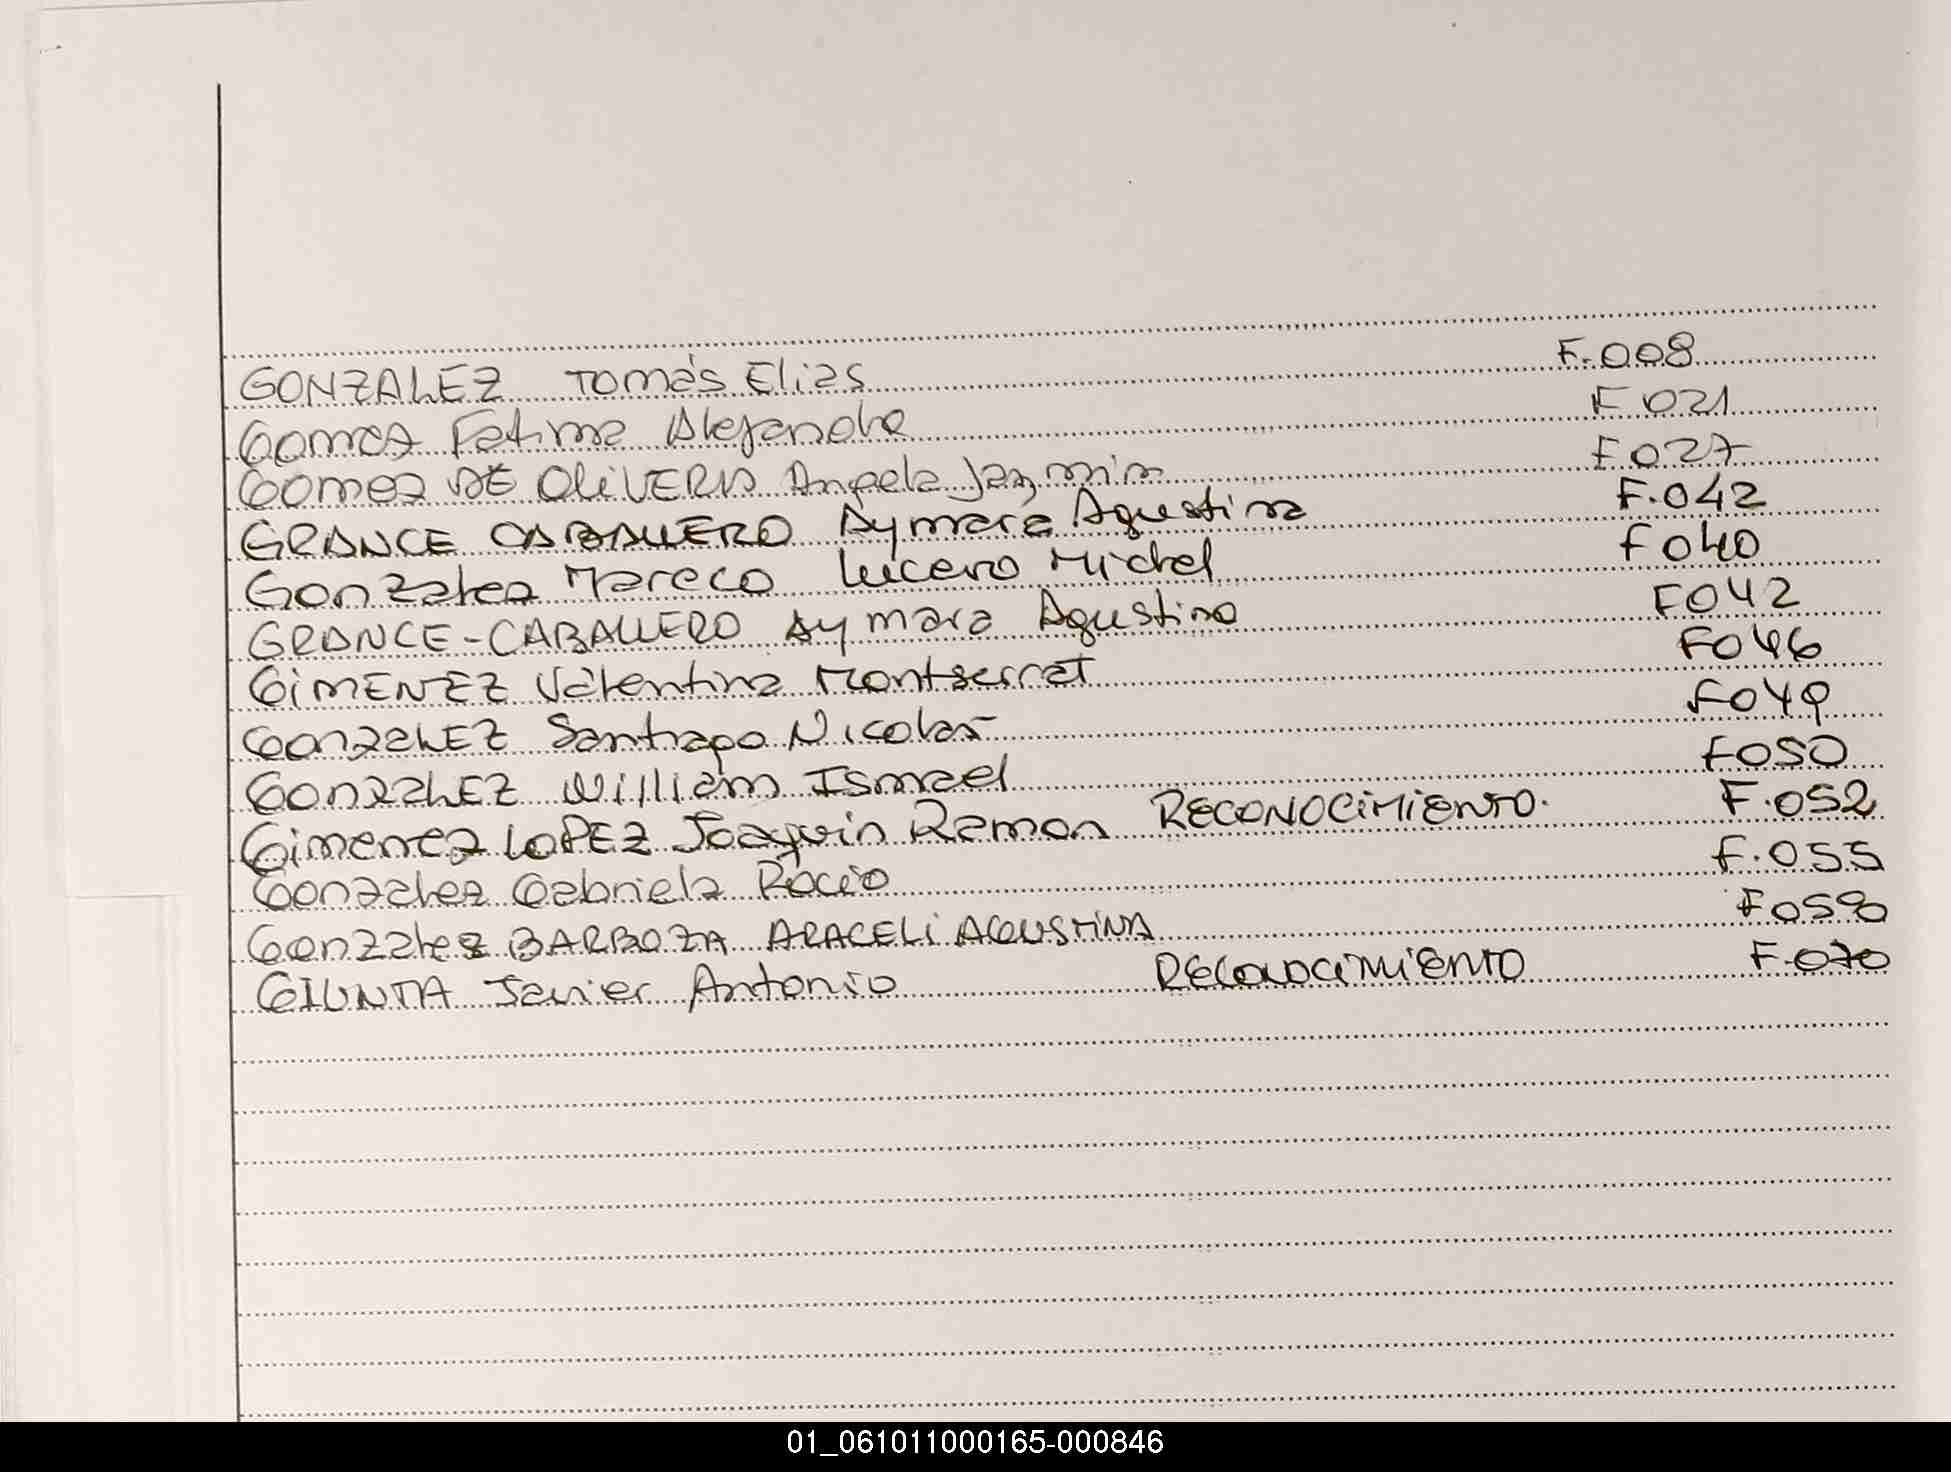 GONZALEZ Tomás Elias F.008
Gomez Fatima Alejandra F021
Gomez DE OLiVERA Angela Jazmin F027
GRANCE CABALLERO Aymara Agustina F.042
Gonzalez Mareco Lucero Michel F040
GRANCE-CABALLERO Aymara Agustina F042
GiMENEZ Valentina Montserrat F046
GonzalEZ Santiago Nicolas F049
GonzalEZ William Ismael F050
Gimenez LOPEZ Joaquin Ramon RECONOCiMiENTO. F.052
Gonzalez Gabriela Rocio F.055
Gonzalez BARBOZA ARACELi AGUSTiNA
GIUNTA Javier Antonio RECONOCiMiENTO F.070
01_061011000165-000846